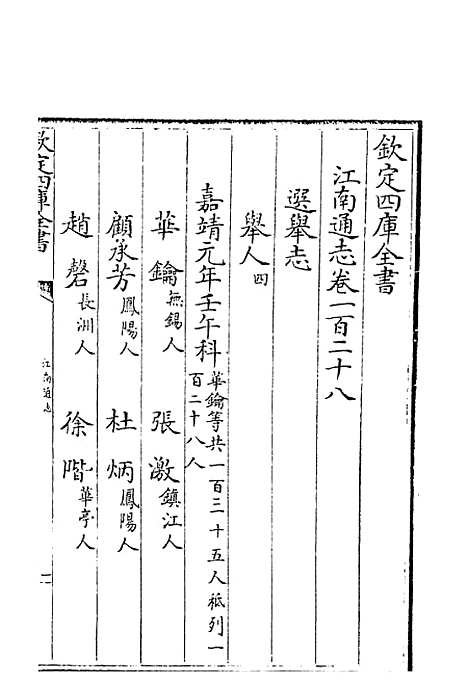 欽定四庫全書
江南通志卷一百二十八
選舉志
舉人四
嘉靖元年壬午科華鑰等共一百三十五人祗列一百二十八人
華鑰無錫人 張激鎮江人
顧承芳鳳陽人 杜炳鳳陽人
趙磬長洲人 徐階華亭人
欽定四庫全書 江南通志 一